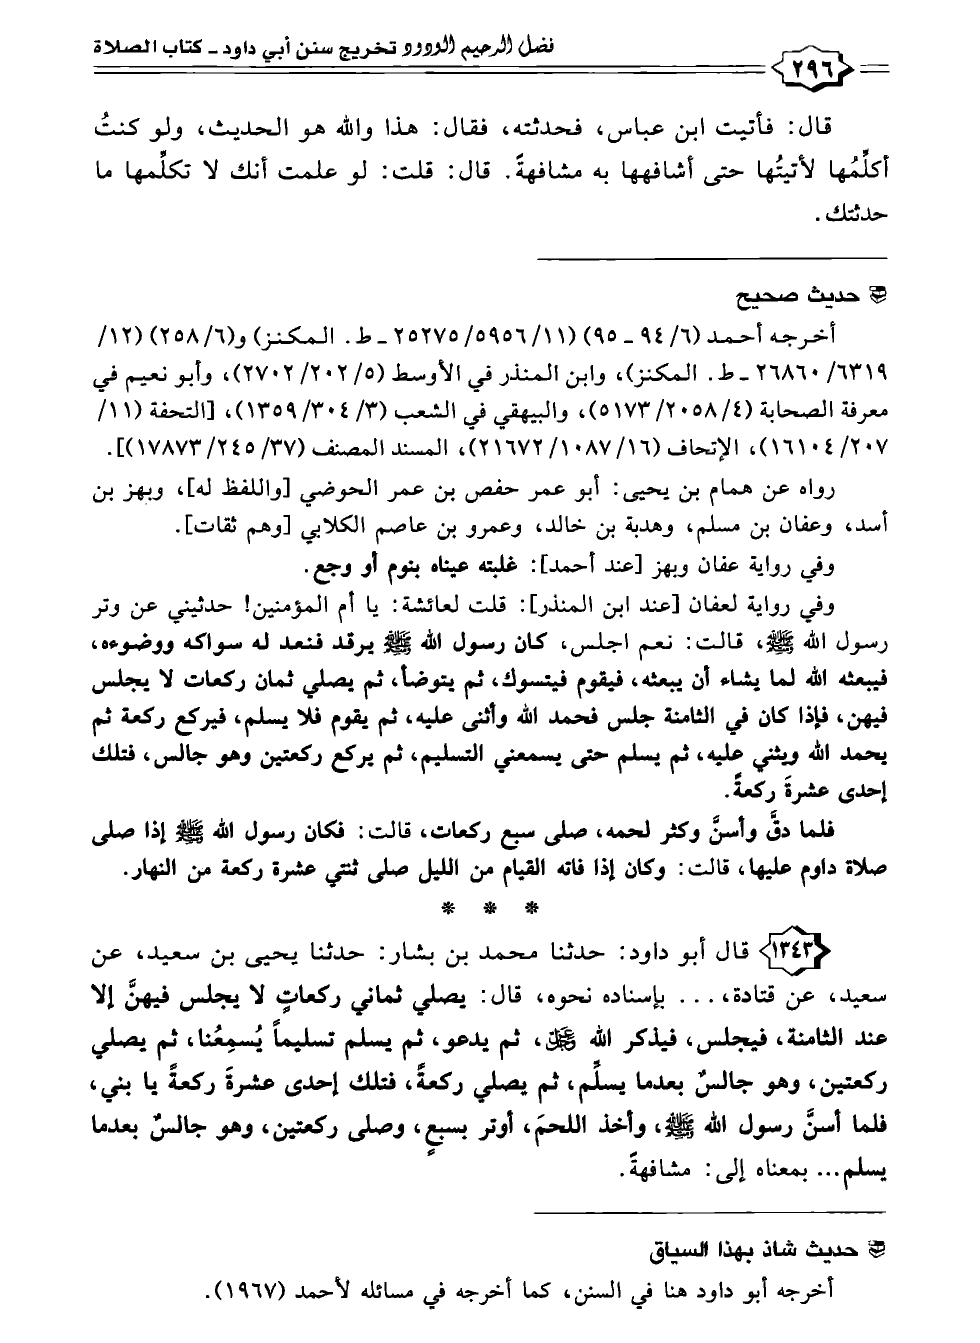 ٢٩٦ فضل الرحيم الودود تخريج سنن أبي داود ـ كتاب الصلاة
قال: فأتيت ابن عباس، فحدثته، فقال: هذا والله هو الحديث، ولو كنتُ
أكلِّمُها لأتيتُها حتى أشافهها به مشافهةً. قال: قلت: لو علمت أنك لا تكلِّمها ما
حدثتك.
حديث صحيح
أخرجه أحمد (٦/ ٩٤ ـ ٩٥) (١١/ ٥٩٥٦/ ٢٥٢٧٥ ـ ط. المكنز) و(٦/ ٢٥٨) (١٢/
٦٣١٩/ ٢٦٨٦٠ ـ ط. المكنز)، وابن المنذر في الأوسط (٥/ ٢٠٢/ ٢٧٠٢)، وأبو نعيم في
معرفة الصحابة (٤/ ٢٠٥٨/ ٥١٧٣)، والبيهقي في الشعب (٣/ ٣٠٤/ ١٣٥٩)، [التحفة (١١/
٢٠٧/ ١٦١٠٤)، الإتحاف (١٦/ ١٠٨٧/ ٢١٦٧٢)، المسند المصنف (٣٧/ ٢٤٥/ ١٧٨٧٣)].
رواه عن همام بن يحيى: أبو عمر حفص بن عمر الحوضي [واللفظ له]، وبهز بن
أسد، وعفان بن مسلم، وهدبة بن خالد، وعمرو بن عاصم الكلابي [وهم ثقات].
وفي رواية عفان وبهز [عند أحمد]: غلبته عيناه بنوم أو وجع.
وفي رواية لعفان [عند ابن المنذر]: قلت لعائشة: يا أم المؤمنين! حدثيني عن وتر
رسول الله ﷺ، قالت: نعم اجلس، كان رسول الله ﷺ يرقد فنعد له سواكه ووضوءه،
فيبعثه الله لما يشاء أن يبعثه، فيقوم فيتسوك، ثم يتوضأ، ثم يصلي ثمان ركعات لا يجلس
فيهن، فإذا كان في الثامنة جلس فحمد الله وأثنى عليه، ثم يقوم فلا يسلم، فيركع ركعة ثم
يحمد الله ويثني عليه، ثم يسلم حتى يسمعني التسليم، ثم يركع ركعتين وهو جالس، فتلك
إحدى عشرةَ ركعةً.
فلما دقَّ وأسنَّ وكثر لحمه، صلى سبع ركعات، قالت: فكان رسول الله ﷺ إذا صلى
صلاة داوم عليها، قالت: وكان إذا فاته القيام من الليل صلى ثنتي عشرة ركعة من النهار.
* * *
١٣٤٣ قال أبو داود: حدثنا محمد بن بشار: حدثنا يحيى بن سعيد، عن
سعيد، عن قتادة،... بإسناده نحوه، قال: يصلي ثماني ركعاتٍ لا يجلس فيهنَّ إلا
عند الثامنة، فيجلس، فيذكر الله ﷻ، ثم يدعو، ثم يسلم تسليماً يُسمِعُنا، ثم يصلي
ركعتين، وهو جالسٌ بعدما يسلِّم، ثم يصلي ركعةً، فتلك إحدى عشرةَ ركعةً يا بني،
فلما أسنَّ رسول الله ﷺ، وأخذ اللحمَ، أوتر بسبعٍ، وصلى ركعتين، وهو جالسٌ بعدما
يسلم... بمعناه إلى: مشافهةً.
حديث شاذ بهذا السياق
أخرجه أبو داود هنا في السنن، كما أخرجه في مسائله لأحمد (١٩٦٧).